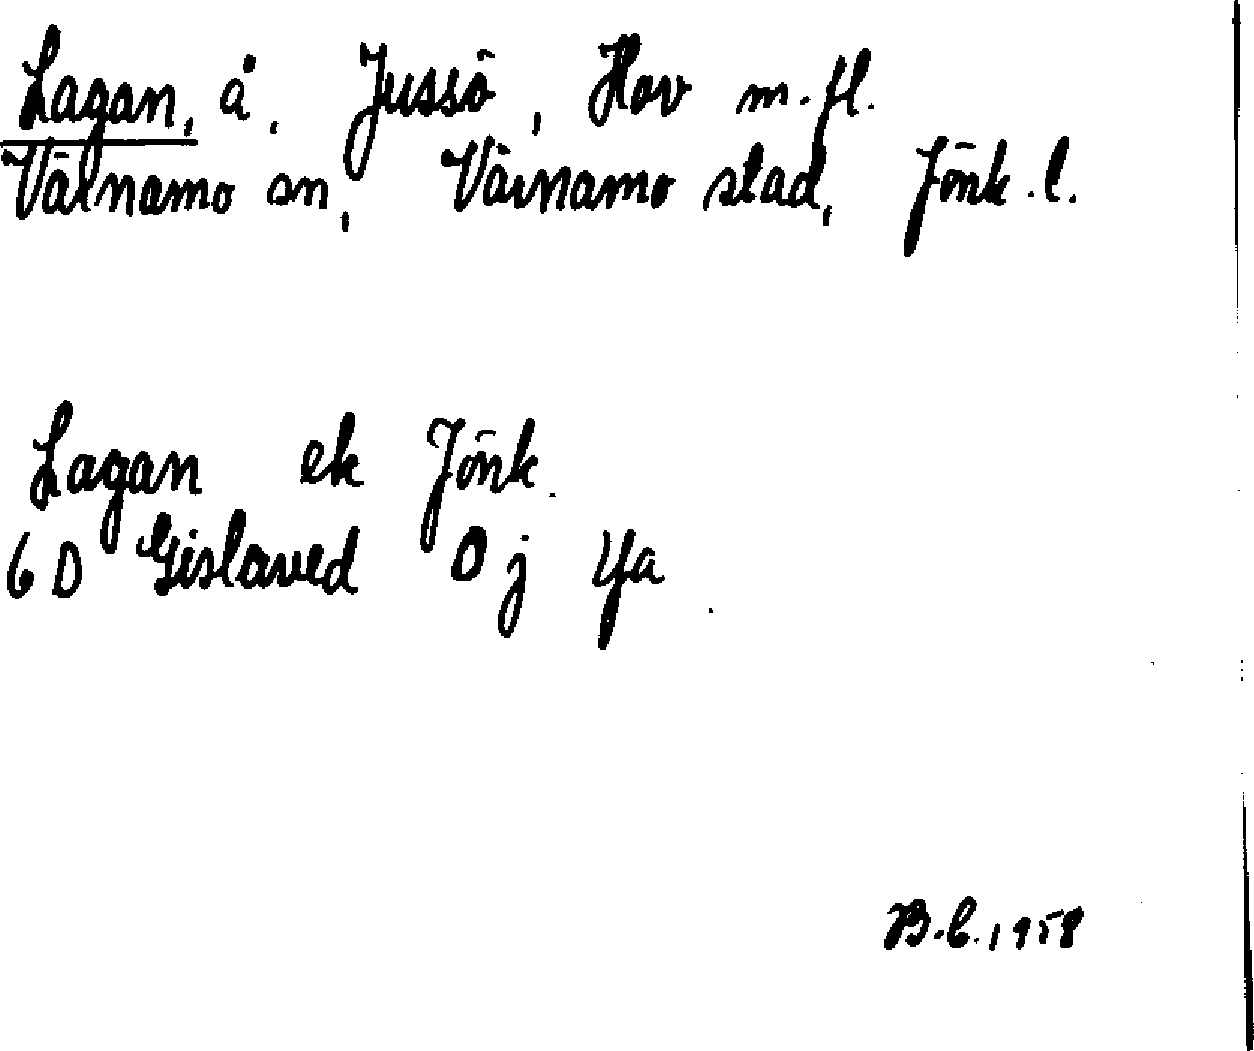 Lagan, å, Jussö, Hov m.fl.
Värnamo sn, Värnamo stad, Jönk.l.
Lagan ek Jönk.
6 D Gislaved 0 j Ya
B.C. 1958